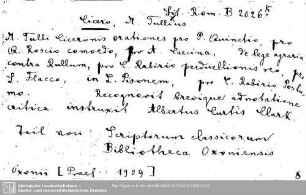 Script. Rom. B 2026k
Cicero, M. Tullius
M. Tulli Ciceronis orationes pro P. Quinctio, pro
Q. Roscio comoedo, pro A. Caecina, de lege agraria
contra Rullum, pro C. Rabirio perduellionis reo, pro
L. Flacco, in L. Pisonem, pro C. Rabirio Postu-
mo. Recognovit brevique adnotatione
critica instruxit Albertus Curtis Clark.
Teil von Scriptorum classicorum
Bibliotheca Oxoniensis
Oxonii [Praef. 1909]